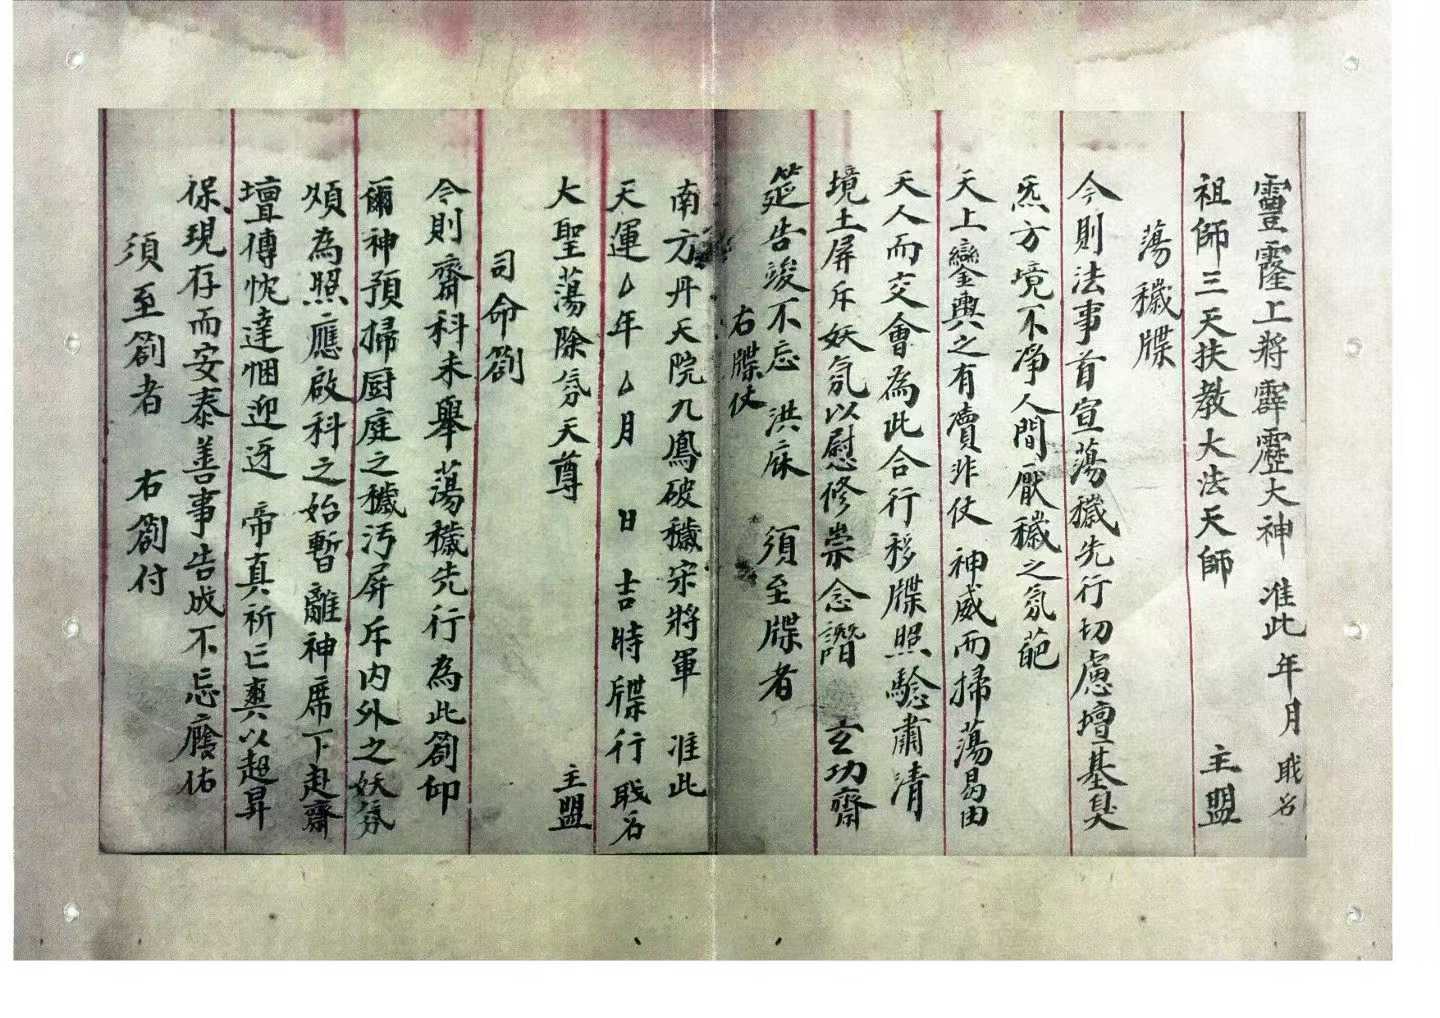 靈霳上將霹靂大神 准此 年 月 戝名
祖師三天扶教大法天師 主盟
蕩穢牒
今則法事首宣蕩穢先行切慮壇基臭
炁方境不净人間厭穢之氛葩
天上鑾輿之有瀆非仗 神威而掃蕩曷由
天人而交會為此合行移牒照驗肅清
境土屏斥妖氛以慰修崇念譖 玄功齋
筵告竣不忘 洪庥 須至牒者
右牒仗
南方丹天院九鳳破穢宋將軍 准此
天運厶年厶月 日吉時牒行戝名
大聖蕩除氛天尊 主盟
司命劄
今則齋科未舉蕩穢先行為此劄仰
爾神預掃厨庭之穢污屏斥内外之妖氛
煩為照應啟科之始暫離神席下赴齋
壇傳忱達悃迎迓 帝真祈亡爽以超昇
保現存而安泰善事告成不忘廕佑
須至劄者 右劄付